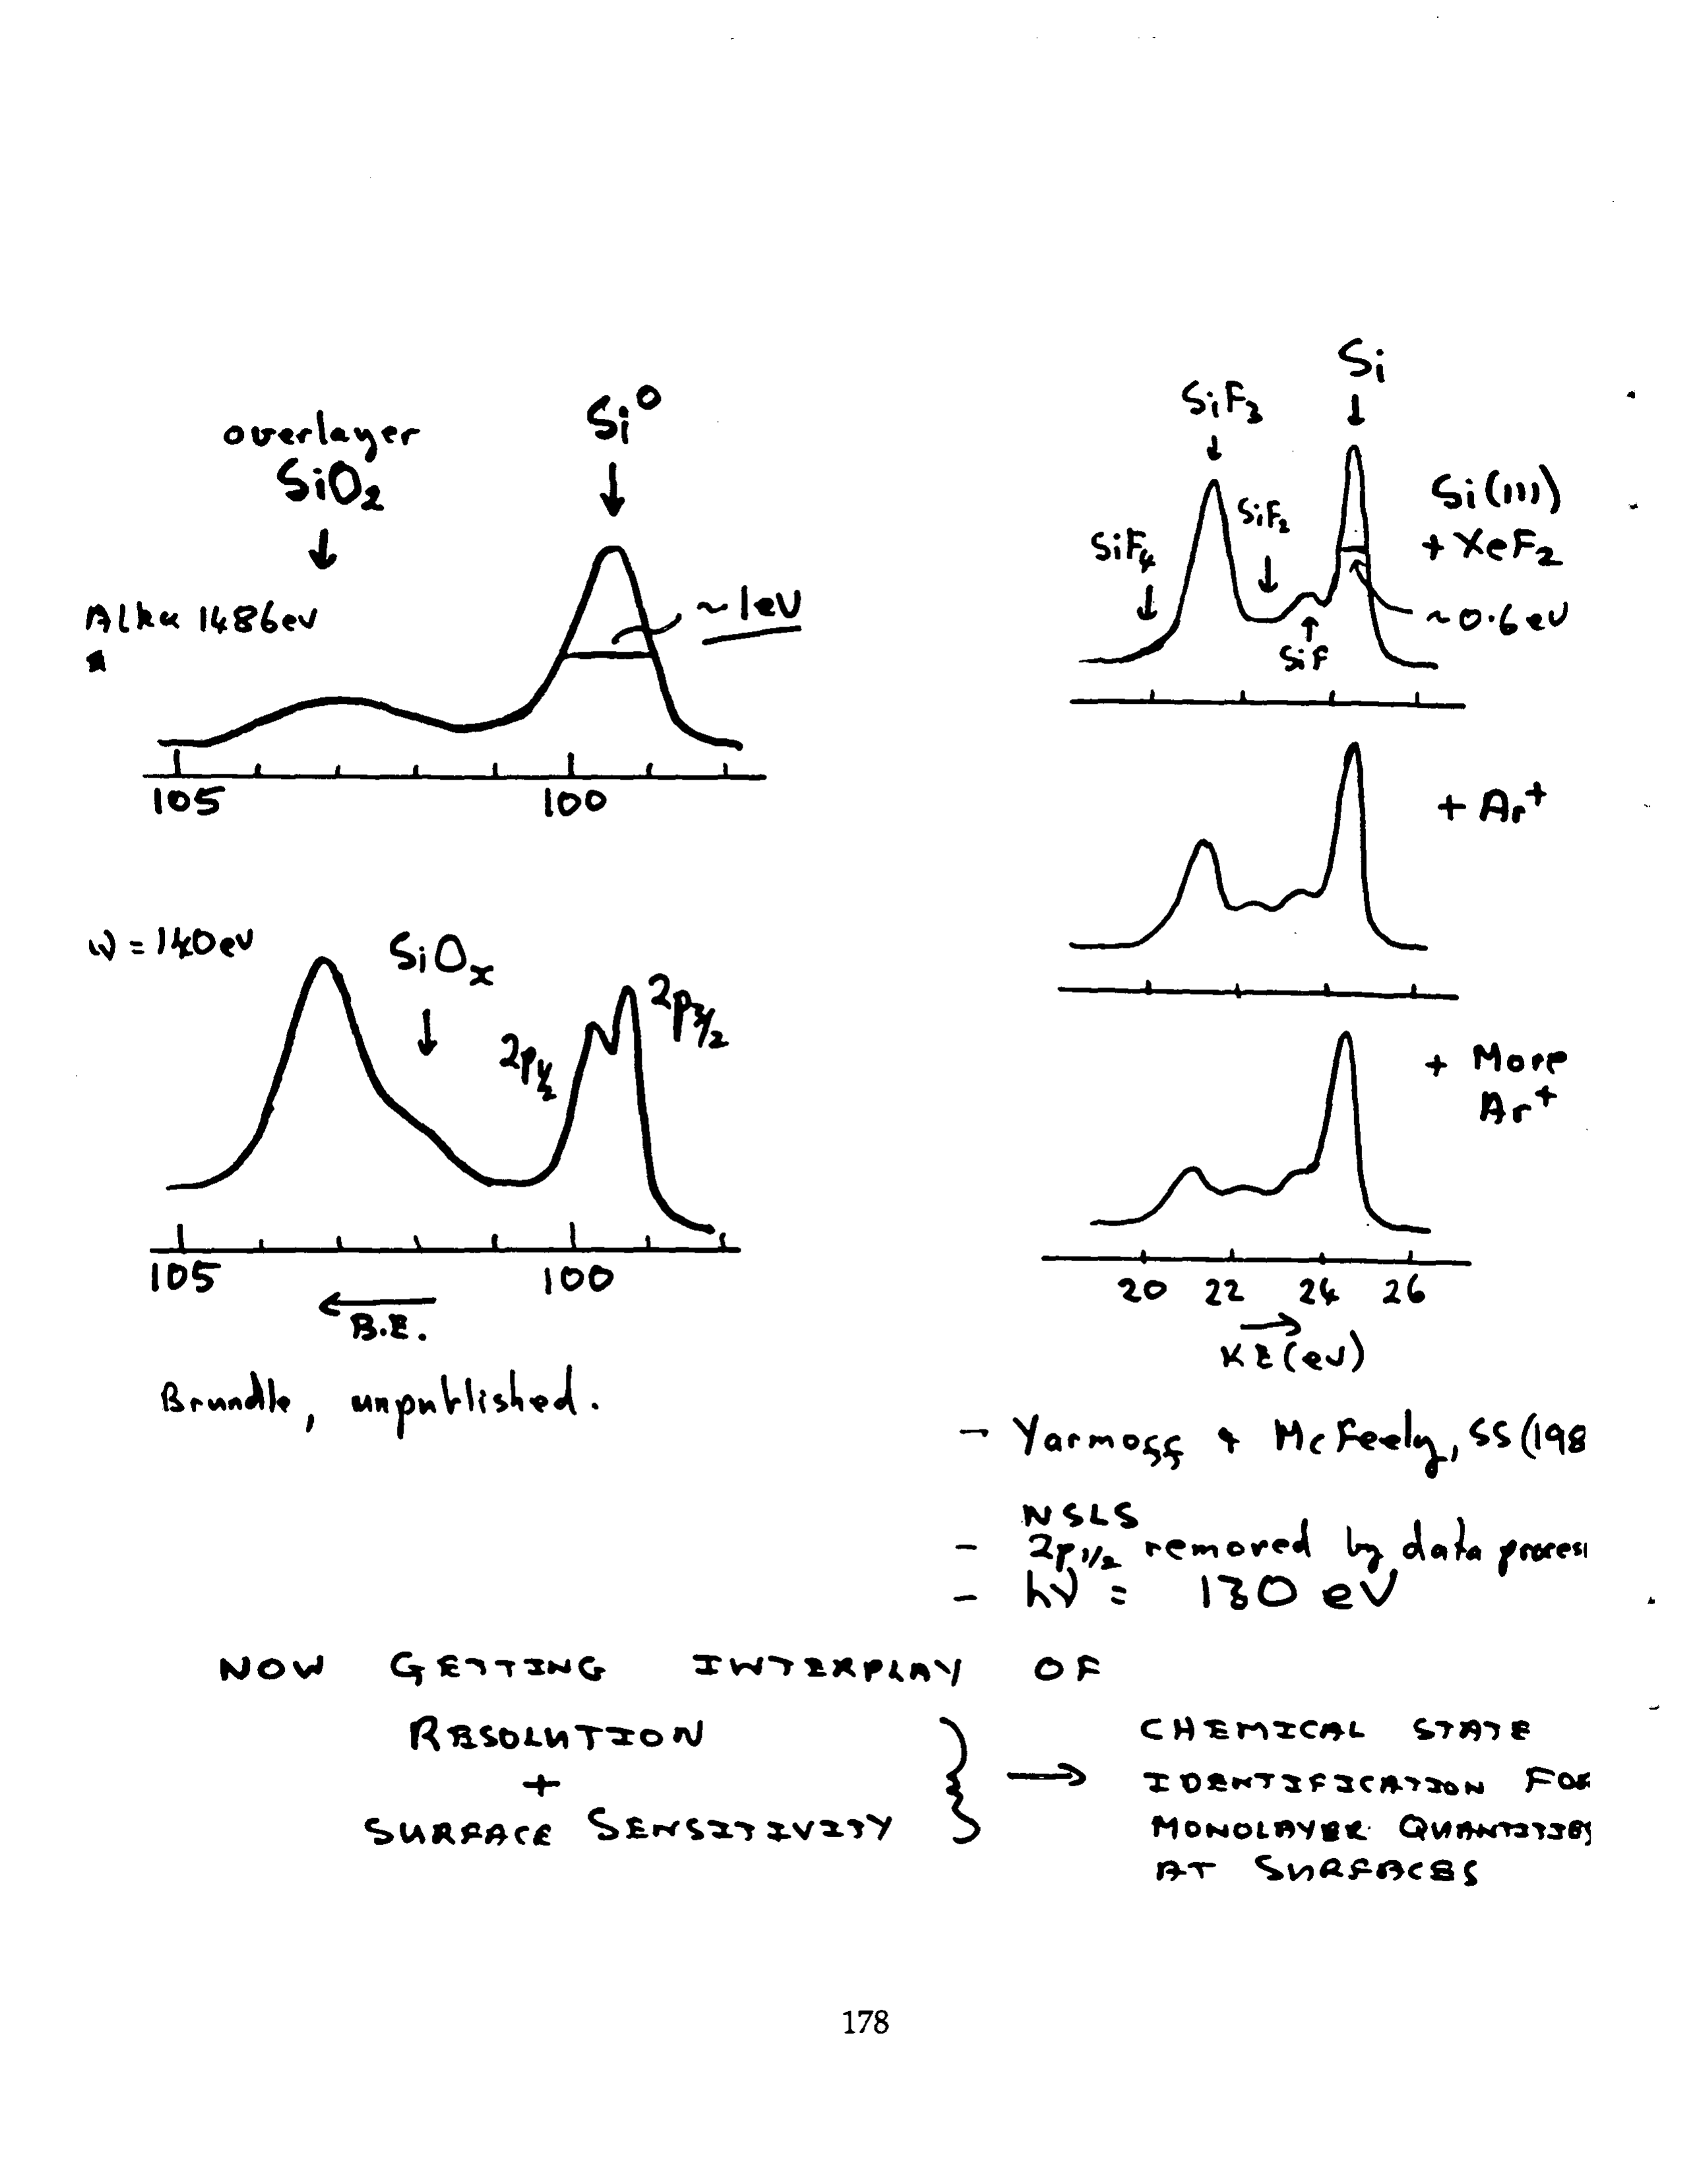 overlayer
SiO2
↓
Si⁰
↓
Alkα 1486ev
~1eV
105
100
ν = 140ev
SiOx
↓
2p½
2p3/2
105
100
←
B.E.
Brundle, unpublished.
Si
↓
SiF3
↓
SiF2
↓
SiF4
↓
↑
SiF
Si(111)
+ XeF2
~0.6eV
+ Ar⁺
+ More
Ar⁺
20 22 24 26
→
KE(eV)
– Yarmoff + McFeely, SS(198
NSLS
– 2p1/2 removed by data process
– hν = 130 eV
NOW GETTING INTERPLAY OF
RESOLUTION
+
SURFACE SENSITIVITY
} →
CHEMICAL STATE
IDENTIFICATION FOR
MONOLAYER QUANTITIES
AT SURFACES
178